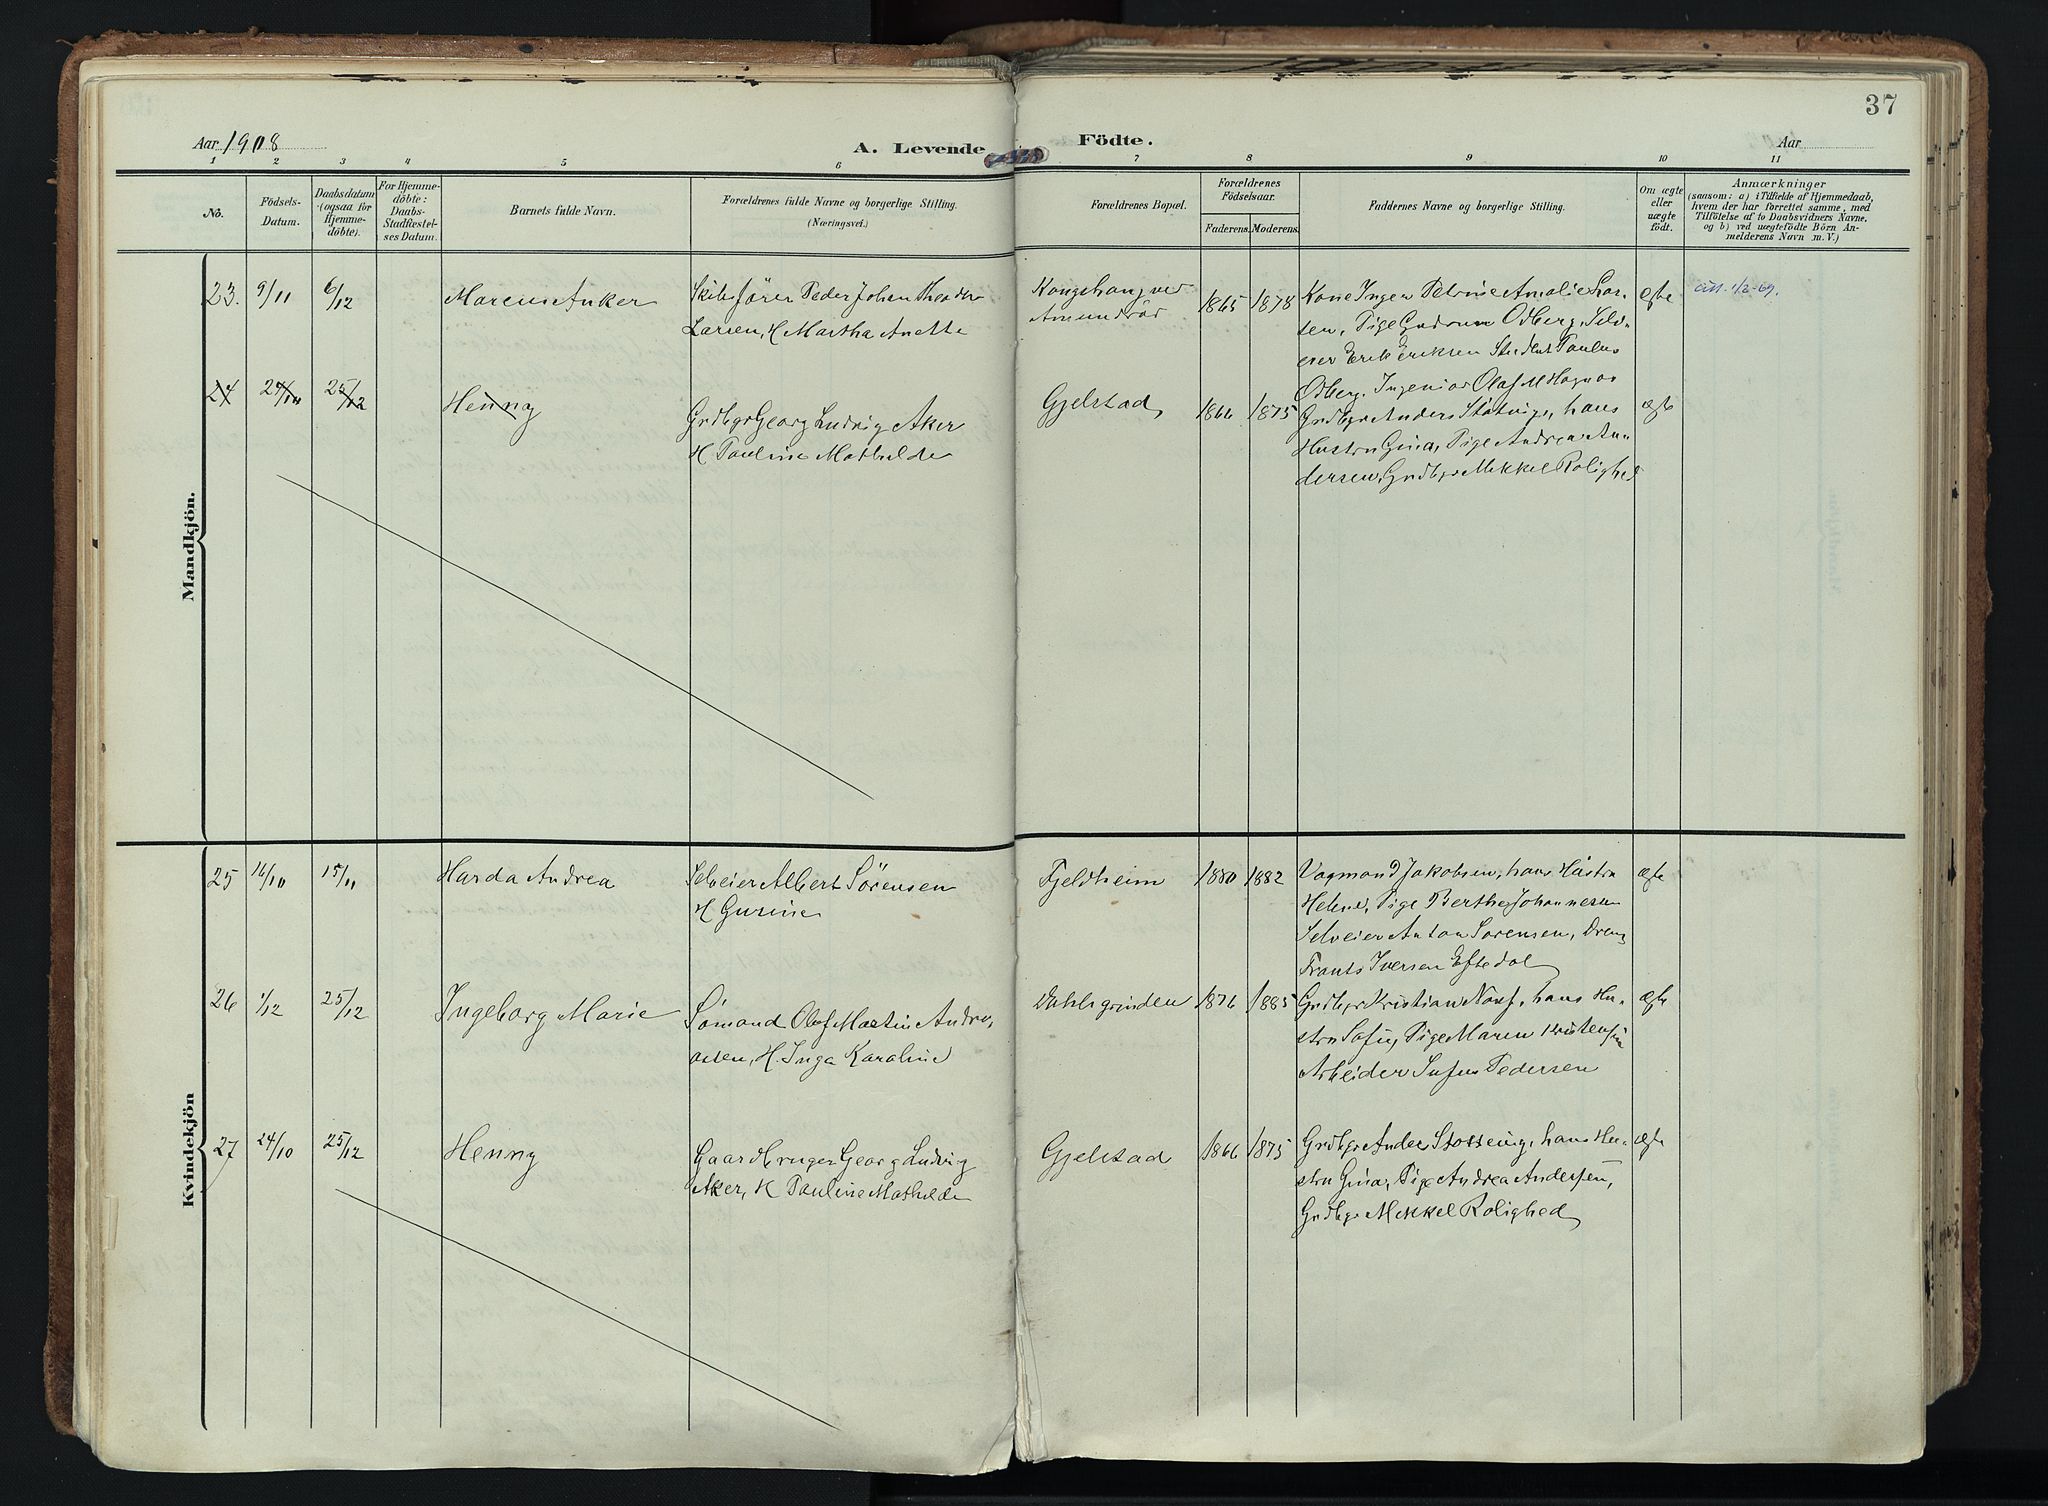 37
Aar 1908
A. Levende
Födte.
Aar
1 2 3 4 5 6 7 8 9 10 11
No.
Födsels-
Datum.
Daabsdatum
(ogsaa for
Hjemme-
döbte).
For Hjemme-
döbte:
Daabs-
Stadfæstel-
ses Datum.
Barnets fulde Navn.
Forældrenes fulde Navne og borgerlige Stilling.
(Næringsvei.)
Forældrenes Bopæl.
Forældrenes
Födselsaar.
Faderens. Moderens.
Faddernes Navne og borgerlige Stilling.
Om ægte
eller
uægte
födt.
Anmærkninger
(saasom: a) i Tilfælde af Hjemmedaab,
hvem der har forrettet samme, med
Tilföielse af to Daabsvidners Navne,
og b) ved uægtefödte Börn An-
melderens Navn m. V.)
Mandkjön.
23. 9/11 6/12 Marcus Anker
Skibsfører Peder Johan Theodor
Larsen, H Martha Anette
Amundrød
1865 1878
Kone Inger Petrine Amalie Lar-
sen, Pige Gudrun Odberg, Selv-
eier Erik Eriksen Student Paulus
Odberg. Ingeniør Olaf M Hagnor
ægte
24 24/10 25/12 Henny
Grdbgr Georg Ludvig Aker
H Pauline Mathilde
Gjelstad
1866 1875
Grdbgr Anders, hans
Hustru Gina, Pige Andrea An-
dersen, Grdbgr Mekkel Rolighed
ægte
Kvindekjön
25 16/10 15/11 Harda Andrea
Selveier Albert Sörensen
H Gusine
Fjeldheim
1880 1882
Vogmand Jakobsen, hans Hustru
Helene, Pige Berthe Johannessen
Selveier Anton Sorensen, Dreng
Frants Iversen Eftedal
ægte
26 1/12 25/12 Ingeborg Marie
Sømand Olaf Martin Andre-
assen, H. Inga Karoline
Dahlsgrinden
1876 1885
Grdbgr Kristian, hans Hu-
stru Sofie, Pige Maren Kristensen
Arbeider Sufus Pedersen
ægte
27 24/10 25/12 Henny
Gaardbruger Georg Ludvig
Aker, H Pauline Mathilde
Gjelstad
1866 1875
Grdbgr Anders, hans Hu-
stru Gina, Pige Andrea Andersen,
Grdbgr Mekkel Rolighed
ægte